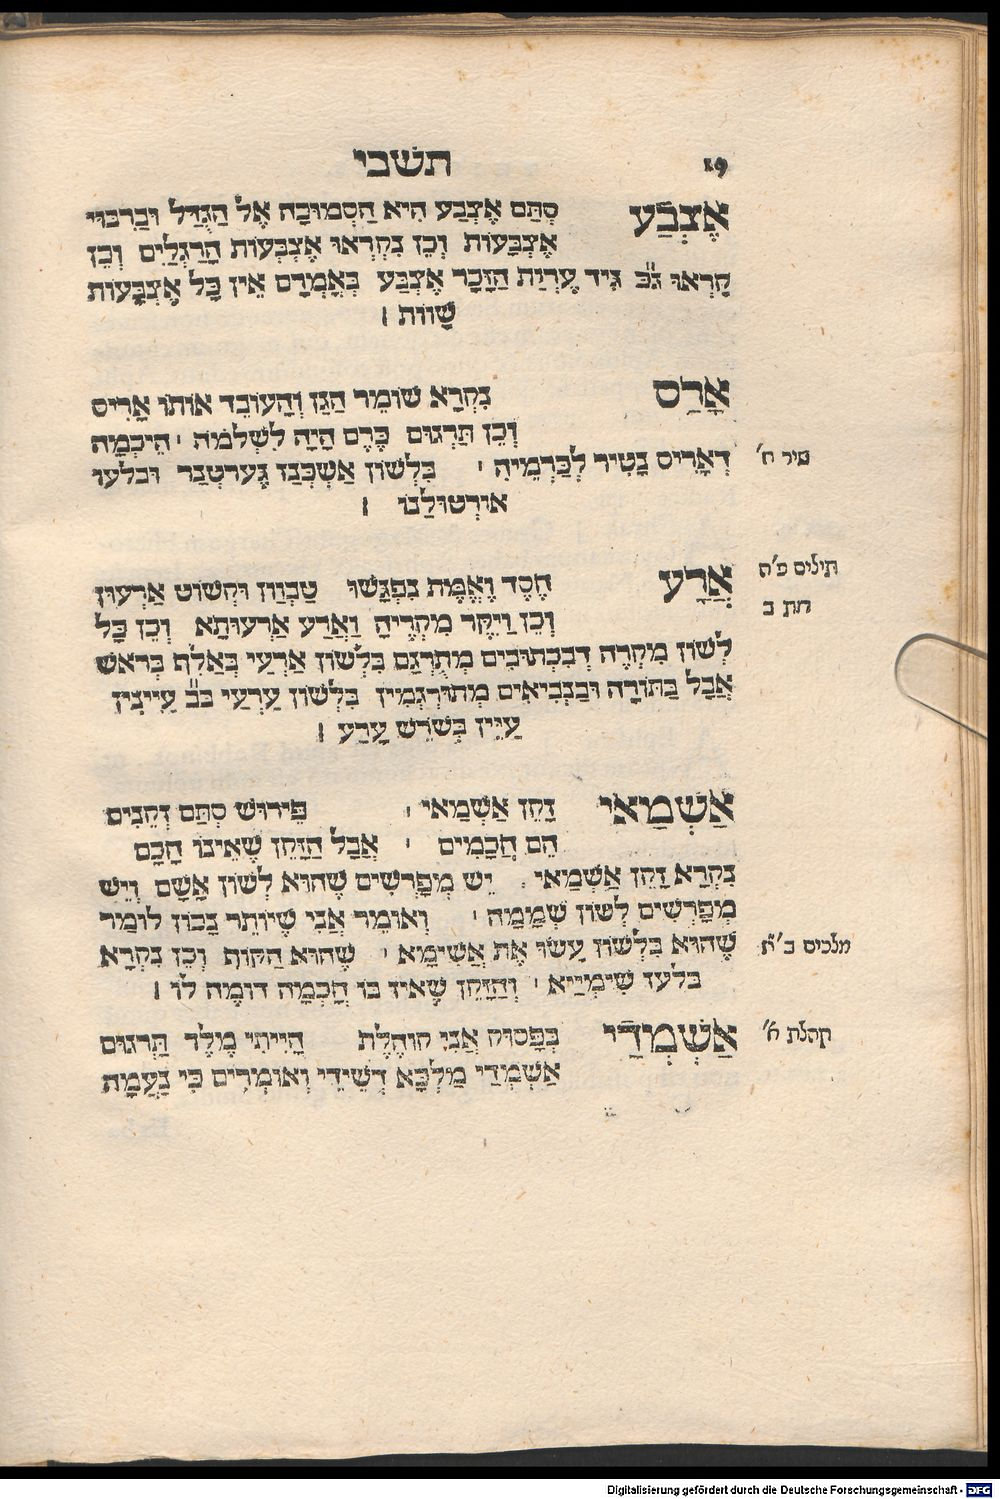 תשבי
אֶצְבַּע סְתַּם אֶצְבַּע הִיא הַסְמוּכָה אֶל הַגֻּדָּל וּבְרִבּוּי
אֶצְבָּעוֹת וְכֵן נִקְרְאוּ אֶצְבְּעוֹת הָרַגְלַיִם וְכֵן
קָרְאוּ ג״כ גִּיד עֶרְוַת הַזָּכָר אֶצְבַּע בְּאָמְרָם אֵין כָּל אֶצְבָּעוֹת
שָׁווֹת ׃
אָרַס נִקְרָא שׁוֹמֵר הַגַּן וְהָעוֹבֵד אוֹתוֹ אָרִיס
וְכֵן תַּרְגוּם כֶּרֶם הָיָה לִשְׁלֹמֹה ׳ הֵיכְמָה
דְאָרִיס נָטִיר לְכַּרְמֵיהּ ׳ בִּלְשׁוֹן אַשְׁכְּנַז גֶערטְנַר וּבלעז
שיר ח׳
אוֹרְטוּלַנוֹ ׃
תילים פ״ה
אֲרָע חֶסֶד וֶאֱמֶת נִפְגָּשׁוּ טַבְוָון וּקְשׁוֹט אַרְעוּן
רות ב
וְכֵן וַיִּקֶר מִקְרֶיהָ וַאֲרַע אַרְעוּתָא וְכֵן כָּל
לְשׁוֹן מִקְרֶה דְבִכְתוּבִים מְתֻרְגַּם בִּלְשׁוֹן אַרְעַי בְּאַלֶף בְּרֹאשׁ
אֲבָל בַּתּוֹרָה וּבַנְבִיאִים מְתוּרְגָּמִין בִּלְשׁוֹן עַרְעַי בּב עַיִינִין
עַיֵּין בְּשֹׁרֶשׁ עָרַע ׃
אַשְׁמַאי זָקֵן אַשְׁמַאי ׃ פֵּירוּשׁ סְתַּם זְקֵנִים
הֵם חֲכָמִים ׳ אֲבָל הַזָּקֵן שֶׁאֵינוֹ חָכָם
נִקְרָא זָקֵן אַשְׁמַאי ׳ יֵשׁ מְפָרְשִׁים שֶׁהוּא לְשׁוֹן אָשָׁם וְיֵשׁ
מְפָרְשִׁים לְשׁוֹן שְׁמָמָה ׳ וְאוֹמֵר אֲנִי שֶׁיּוֹתֵר נָכוֹן לוֹמַר
שֶׁהוּא בִּלְשׁוֹן עָשׂוּ אֶת אֲשִׁימָא ׳ שֶׁהוּא הַקּוֹף וְכֵן נִקְרָא
מלכים ב׳
בלעז שִׁימִיָיא ׳ וְהַזָּקֵן שֶׁאֵין בּוֹ חָכְמָה דּוֹמֶה לוֹ ׃
אַשְׁמְדַי בְּפָסוּק אֲנִי קוֹהֶלֶת הָיִיתִי מֶלֶך תַּרְגוּם
קהלת א׳
אַשְׁמְדַי מַלְכָּא דְשֵׁידֵי וְאוֹמְרִים כִּי נַעֲמָה
Digitalisierung gefördert durch die Deutsche Forschungsgemeinschaft - DFG